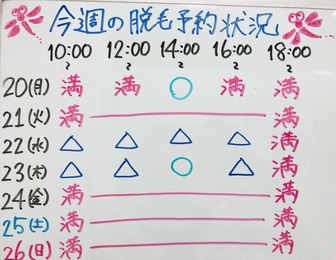 今週の脱毛予約状況
10:00 12:00 14:00 16:00 18:00
〜 〜 〜 〜 〜
20(月) 満 満 ○ 満 満
21(火) 満 ― 満
22(水) △ △ △ △ 満
23(木) △ △ ○ △ 満
24(金) 満 ― 満
25(土) 満 ― 満
26(日) 満 ― 満